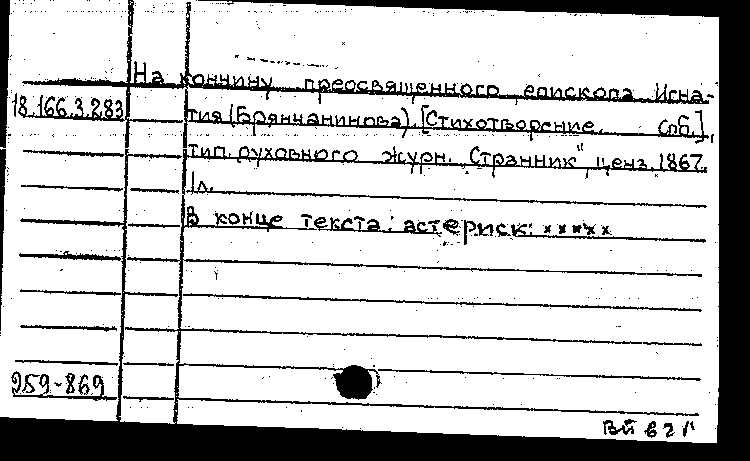 На кончину преосвященного епископа Игна-
18.166.3.283 тия (Брянчанинова). [Стихотворение. Спб.],
тип. духовного журн. "Странник", ценз. 1867.
1л.
В конце текста: астериск: xxxxx
959-869